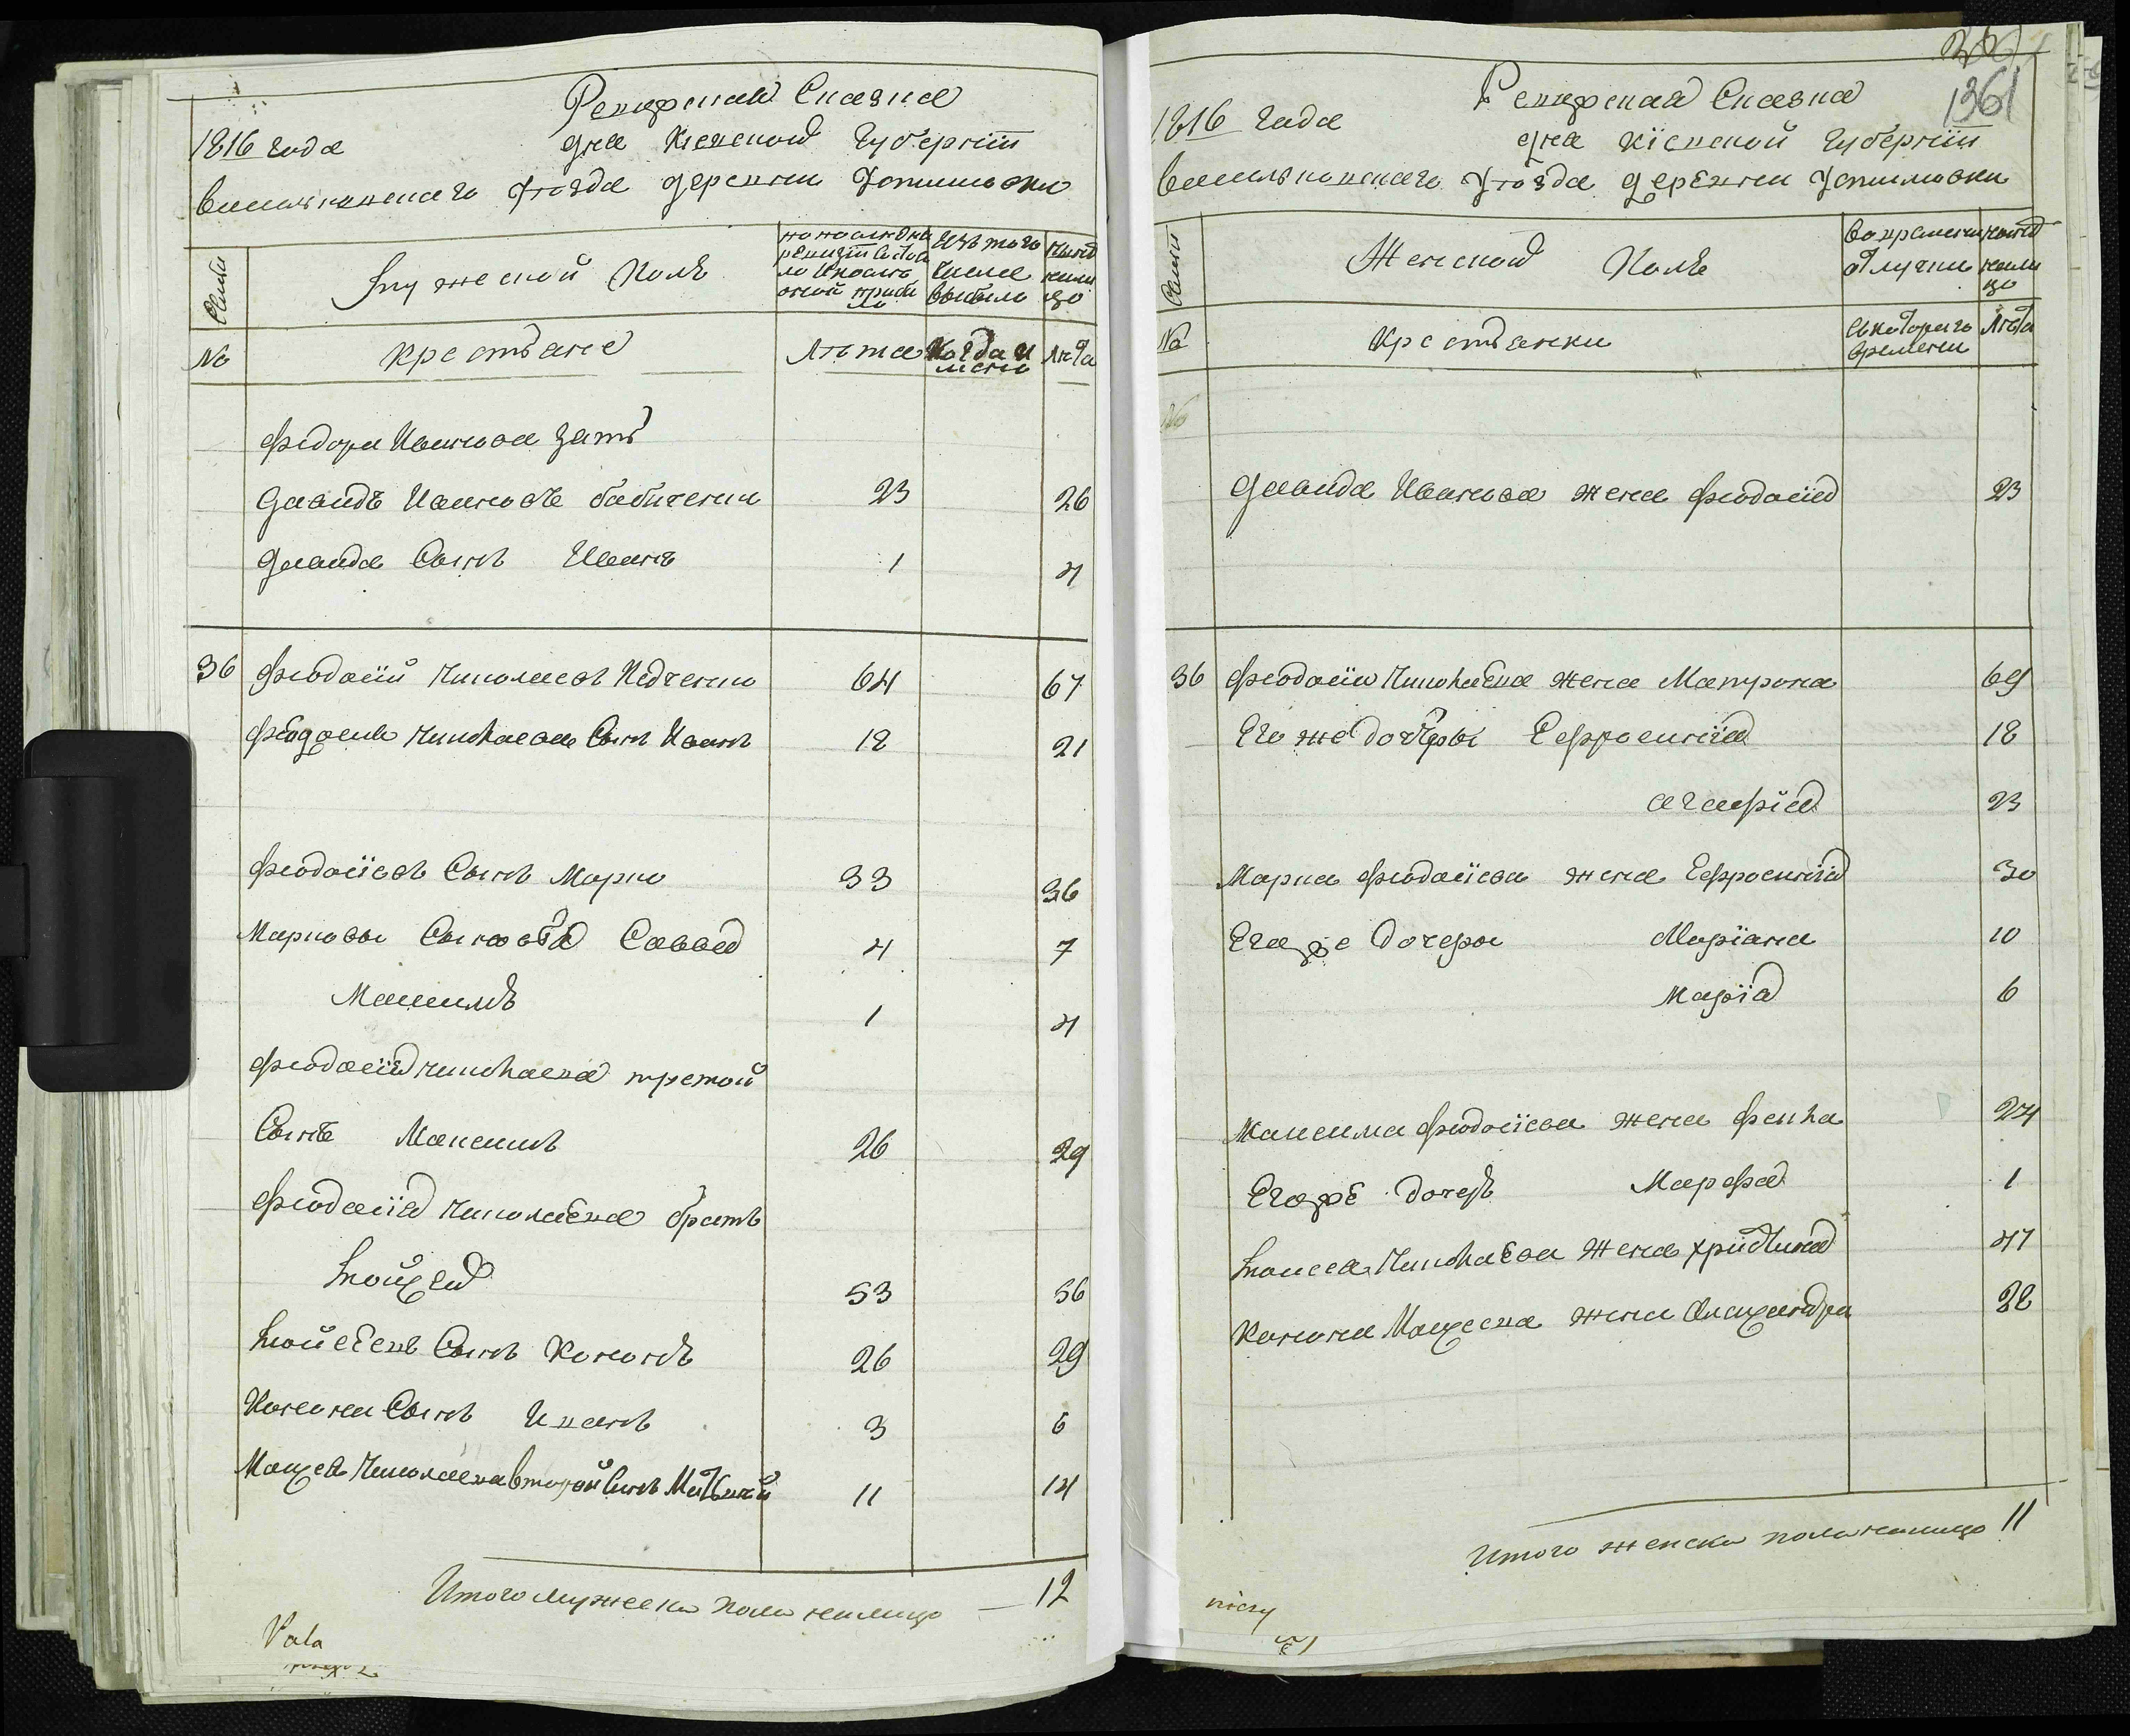 Ревизская Сказка
1816 года дня Киевской Губернии
Васильковскаго уезда деревни Устимовки
Семьи
Мужеской Полъ
по последней ревизіи состояло и после оной прибыло
Изъ того числа выбыло
Ныне налицо
№
Крестьяне
Лета
Когда и имено
Лета
Федора Иванова зять
Давидъ Ивановъ бабиченко 23 26
Давида Сынъ Иванъ 1 4
36 Феодосій Николаевъ 64 67
Феодосия Николаева Сынъ Иванъ 18 21
Феодосіевъ Сынъ Марко 33 36
Марковы Сыновья Савва 4 7
Максимъ 1 4
Феодосія Николаева третой
Сынъ Максимъ 26 29
Феодосія Николаева братъ
Мойсей 53 56
Мойсеевъ Сынъ Кононъ 26 29
Конона Сынъ Иванъ 3 6
Мойсея Николаева второй Сынъ Матвей 11 14
Итого мужеска пола налицо — 12
Vata
1361
Ревизская Сказка
1816 года дня Кіевской Губерніи
Васильковскаго уезда деревни Устимовки
Семьи
Женской Полъ
Во временной отлучке
Ныне налицо
№
Крестьянки
Съ котораго времени
Лета
№
Давида Иванова жена Феодосія 23
36 Феодосія Николаева жена Матрона 69
Его же дочери Ефросинія 18
Агафія 23
Марка Феодосіева жена Ефросинія 30
Егоже дочери Маріана 10
Марія 6
Максима Феодосіева жена Фекла 24
Егоже дочерь Марфа 1
Моисея Николаева жена Христина 47
Конона Моисеева жена Александра 28
Итого женска пола налицо 11